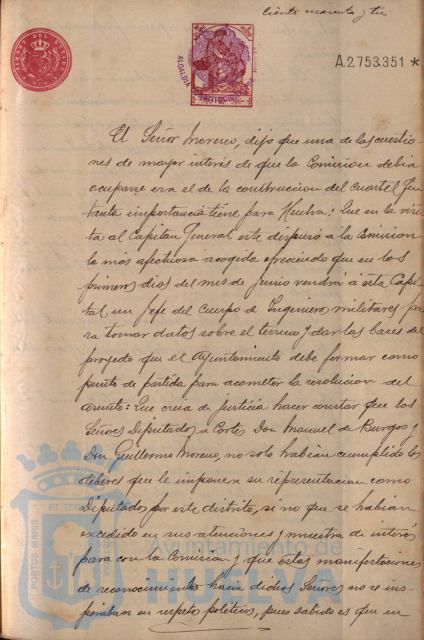 Ciento noventa y tres
A.2.753.351 *
El Señor Moreno, dijo que una de las cuestio-
nes de mayor interés de que la Comision debia
ocuparse era el de la construccion del Cuartel que
tanta importancia tiene para Huelva: Que en la visi-
ta al Capitan General este dispensó á la Comision
la más afectuosa acogida ofreciendo que en los
primeros dias del mes de Junio vendrá á esta Capi-
tal un Jefe del Cuerpo de Ingenieros militares pa-
ra tomar datos sobre el terreno y dar las bases del
proyecto que el Ayuntamiento debe formar como
punto de partida para acometer la resolucion del
asunto: Que creia de justicia hacer constar que los
Señores Diputados á Cortes Don Manuel de Burgos y
Don Guillermo Moreno, no solo habian cumplido los
deberes que le imponen su representacion como
Diputados por este distrito, si no que se habian
excedido en sus atenciones y muestra de interés
para con la Comision y que estas manifestaciones
de reconocimiento hacia dichos Señores no se ins-
piraban en respetos politicos, pues sabido es que en
PORTUS MARIS
ET TERRAE
Ayuntamiento de
HUELVA